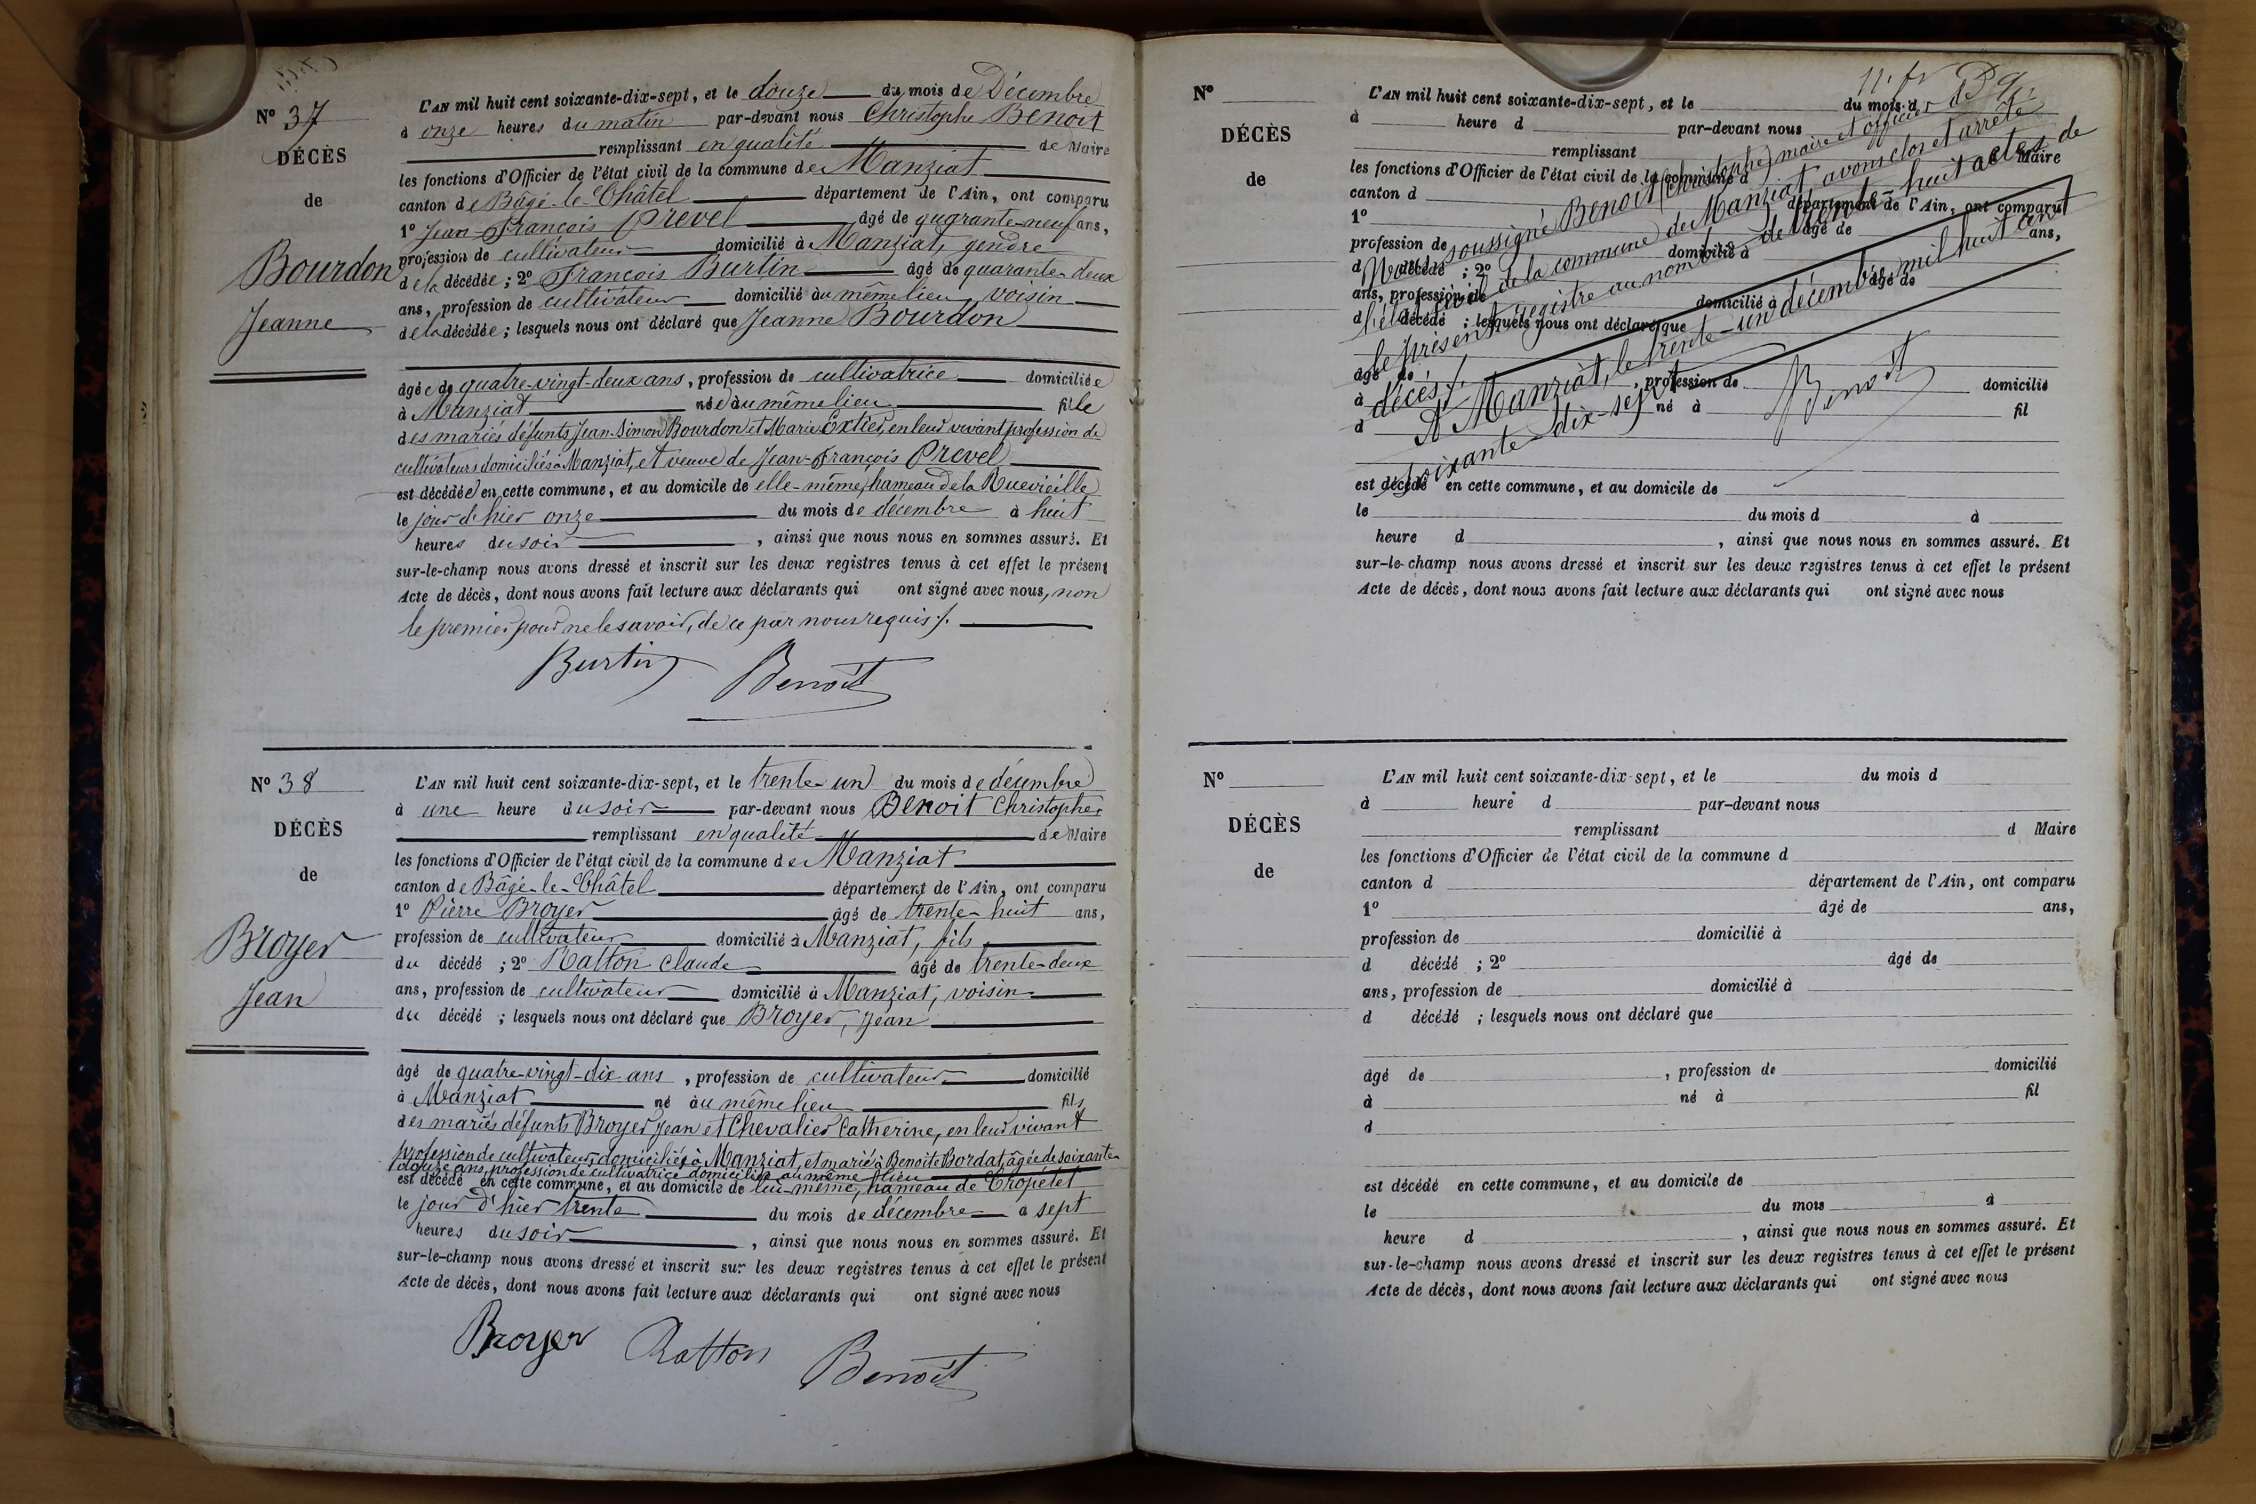 N° 37
DÉCÈS
de
Bourdon
Jeanne
L'AN mil huit cent soixante-dix-sept, et le douze du mois de Décembre
à onze heures du matin par-devant nous Christophe Benoit
remplissant en qualité de Maire
les fonctions d'Officier de l'état civil de la commune de Manziat
canton de Bâgé-le-Châtel département de l'Ain, ont comparu
1° Jean-François Prevel âgé de quarante-neuf ans,
profession de cultivateur domicilié à Manziat, gendre
de la décédée ; 2° François Burtin âgé de quarante-deux
ans, profession de cultivateur domicilié au même lieu, voisin
de la décédée ; lesquels nous ont déclaré que Jeanne Bourdon
âgée de quatre-vingt-deux ans, profession de cultivatrice domiciliée
à Manziat née au même lieu fille
des mariés défunts Jean-Simon Bourdon et Marie Extier, en leur vivant profession de
cultivateurs domiciliés à Manziat, et veuve de Jean-François Prevel
est décédée en cette commune, et au domicile de elle-même, hameau de la Ruevieille
le jour d'hier onze du mois de décembre à huit
heures du soir, ainsi que nous nous en sommes assuré. Et
sur-le-champ nous avons dressé et inscrit sur les deux registres tenus à cet effet le présent
Acte de décès, dont nous avons fait lecture aux déclarants qui ont signé avec nous, non
le premier pour ne le savoir, de ce par nous requis ./.
Burtin Benoît
N° 38
DÉCÈS
de
Broyer
Jean
L'AN mil huit cent soixante-dix-sept, et le trente-un du mois de décembre
à une heure du soir par-devant nous Benoit Christophe
remplissant en qualité de Maire
les fonctions d'Officier de l'état civil de la commune de Manziat
canton de Bâgé-le-Châtel département de l'Ain, ont comparu
1° Pierre Broyer âgé de trente-huit ans,
profession de cultivateur domicilié à Manziat, fils
du décédé ; 2° Ratton Claude âgé de trente-deux
ans, profession de cultivateur domicilié à Manziat, voisin
du décédé ; lesquels nous ont déclaré que Broyer, Jean
âgé de quatre-vingt-dix ans, profession de cultivateur domicilié
à Manziat né au même lieu fils
des mariés défunts Broyer Jean et Chevalier Catherine, en leur vivant
profession de cultivateurs, domiciliés à Manziat, et marié à Benoite Bordat, âgée de soixante-
douze ans, profession de cultivatrice domiciliée au même lieu
est décédé en cette commune, et au domicile de lui-même, hameau de Chopétel
le jour d'hier trente du mois de décembre à sept
heures du soir, ainsi que nous nous en sommes assuré. Et
sur-le-champ nous avons dressé et inscrit sur les deux registres tenus à cet effet le présent
Acte de décès, dont nous avons fait lecture aux déclarants qui ont signé avec nous
Broyer Ratton Benoît
N°
DÉCÈS
de
L'AN mil huit cent soixante-dix-sept, et le du mois d
à heure d par-devant nous
remplissant Maire
les fonctions d'Officier de l'état civil de la commune d
canton d département de l'Ain, ont comparu
1° âgé de ans,
profession de domicilié à
d décédé ; 2° âgé de
ans, profession de domicilié à
d décédé ; lesquels nous ont déclaré que
âgé de , profession de domicilié
à né à fil
d
est décédé en cette commune, et au domicile de
le du mois d à
heure d , ainsi que nous nous en sommes assuré. Et
sur-le-champ nous avons dressé et inscrit sur les deux registres tenus à cet effet le présent
Acte de décès, dont nous avons fait lecture aux déclarants qui ont signé avec nous
Nous soussigné Benoit (Christophe) maire et officier de
l'état civil de la commune de Manziat avons clos et arrêté
le présent registre au nombre de trente-huit actes de
décès ./.
A Manziat, le trente-un décembre mil huit cent
soixante-dix-sept
Benoît
N°
DÉCÈS
de
L'AN mil huit cent soixante-dix-sept, et le du mois d
à heure d par-devant nous
remplissant d Maire
les fonctions d'Officier de l'état civil de la commune d
canton d département de l'Ain, ont comparu
1° âgé de ans,
profession de domicilié à
d décédé ; 2° âgé de
ans, profession de domicilié à
d décédé ; lesquels nous ont déclaré que
âgé de , profession de domicilié
à né à fil
d
est décédé en cette commune, et au domicile de
le du mois à
heure d , ainsi que nous nous en sommes assuré. Et
sur-le-champ nous avons dressé et inscrit sur les deux registres tenus à cet effet le présent
Acte de décès, dont nous avons fait lecture aux déclarants qui ont signé avec nous